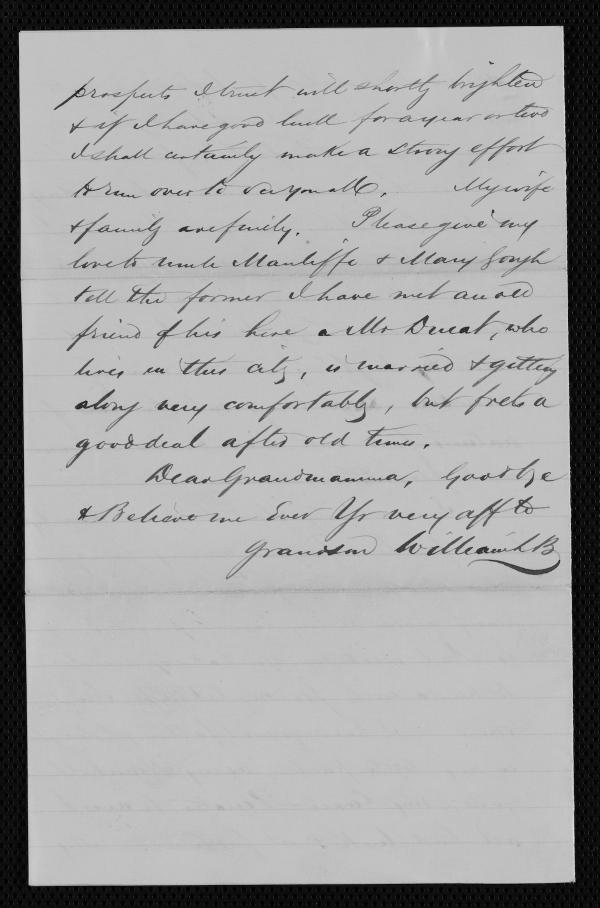 prospects I trust will shortly brighten
& if I have good luck for a year or two
I shall certainly make a strong effort
to run over to see you all. My wife
& family are finely. Please give my
love to uncle Manliffe & Mary Gough
tell the former I have met an old
friend of his here a Mr Ducat, who
lives in this city, is married & getting
along very comfortably, but frets a
good deal after old times.
Dear Grandmamma, Goodbye
& Believe me Ever Yr very aff to
Grandson William L B